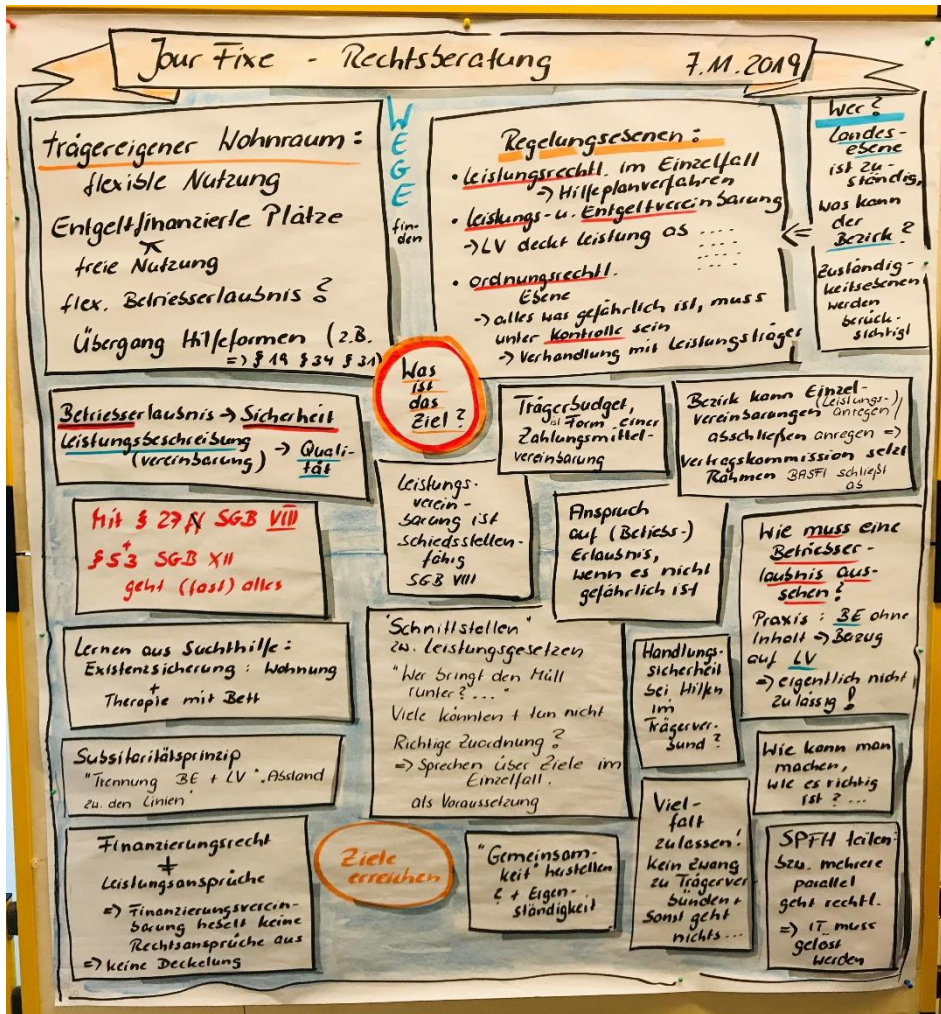 Jour Fixe - Rechtsberatung 7.11.2019
trägereigener Wohnraum:
flexible Nutzung
Entgeltfinanzierte Plätze
freie Nutzung
flex. Betriebserlaubnis?
Übergang Hilfeformen (z.B.
=> § 19 § 34 § 31)
WEGE
fin-
den
Regelungsebenen:
• leistungsrechtl. im Einzelfall
-> Hilfeplanverfahren
• leistungs- u. Entgeltvereinbarung
-> LV deckt Leistung ab ....
• ordnungsrechtl.
Ebene
-> alles was gefährlich ist, muss
unter Kontrolle sein
-> Verhandlung mit Leistungsträger
Wer?
Landes-
ebene
ist zu-
ständig,
was kann
der
Bezirk?
<=
Zuständig-
keitsebenen
werden
berück-
sichtigt
Was
ist
das
Ziel?
Betriebserlaubnis -> Sicherheit
Leistungsbeschreibung
(vereinbarung) -> Quali-
tät
Trägerbudget,
ist Form einer
Zahlungsmittel-
vereinbarung
Bezirk kann Einzel-
vereinbarungen (Leistungs-)
anregen/
abschließen anregen =>
Vertragskommission setzt
Rahmen BASFI schließt
ab
Mit § 27 II SGB VIII
+
§ 53 SGB XII
geht (fast) alles
Leistungs-
verein-
barung ist
schiedsstellen-
fähig
SGB VIII
Anspruch
auf (Betriebs-)
Erlaubnis,
wenn es nicht
gefährlich ist
Wie muss eine
Betriebser-
laubnis aus-
sehen?
Praxis: BE ohne
Inhalt => Bezug
auf LV
=> eigentlich nicht
zulässig!
Lernen aus Suchthilfe:
Existenzsicherung: Wohnung
+
Therapie mit Bett
"Schnittstellen"
zw. Leistungsgesetzen
"Wer bringt den Müll
runter?..."
Viele könnten + tun nicht
Richtige Zuordnung?
=> Sprechen über Ziele im
Einzelfall.
als Voraussetzung
Handlungs-
sicherheit
bei Hilfen
im
Trägerver-
bund?
Subsitaritätsprinzip
"Trennung BE + LV". Abstand
zw. den Linien"
Wie kann man
machen,
wie es richtig
ist?...
Finanzierungsrecht
+
Leistungsansprüche
=> Finanzierungsverein-
barung hebelt keine
Rechtsansprüche aus
=> keine Deckelung
Ziele
erreichen
"Gemeinsam-
keit" herstellen
? + Eigen-
ständigkeit
Viel-
falt
zulassen!
Kein Zwang
zu Trägerver-
bünden +
Sonst geht
nichts...
SPFH teilen:
bzw. mehrere
parallel
geht rechtl.
=> IT muss
gelöst
werden